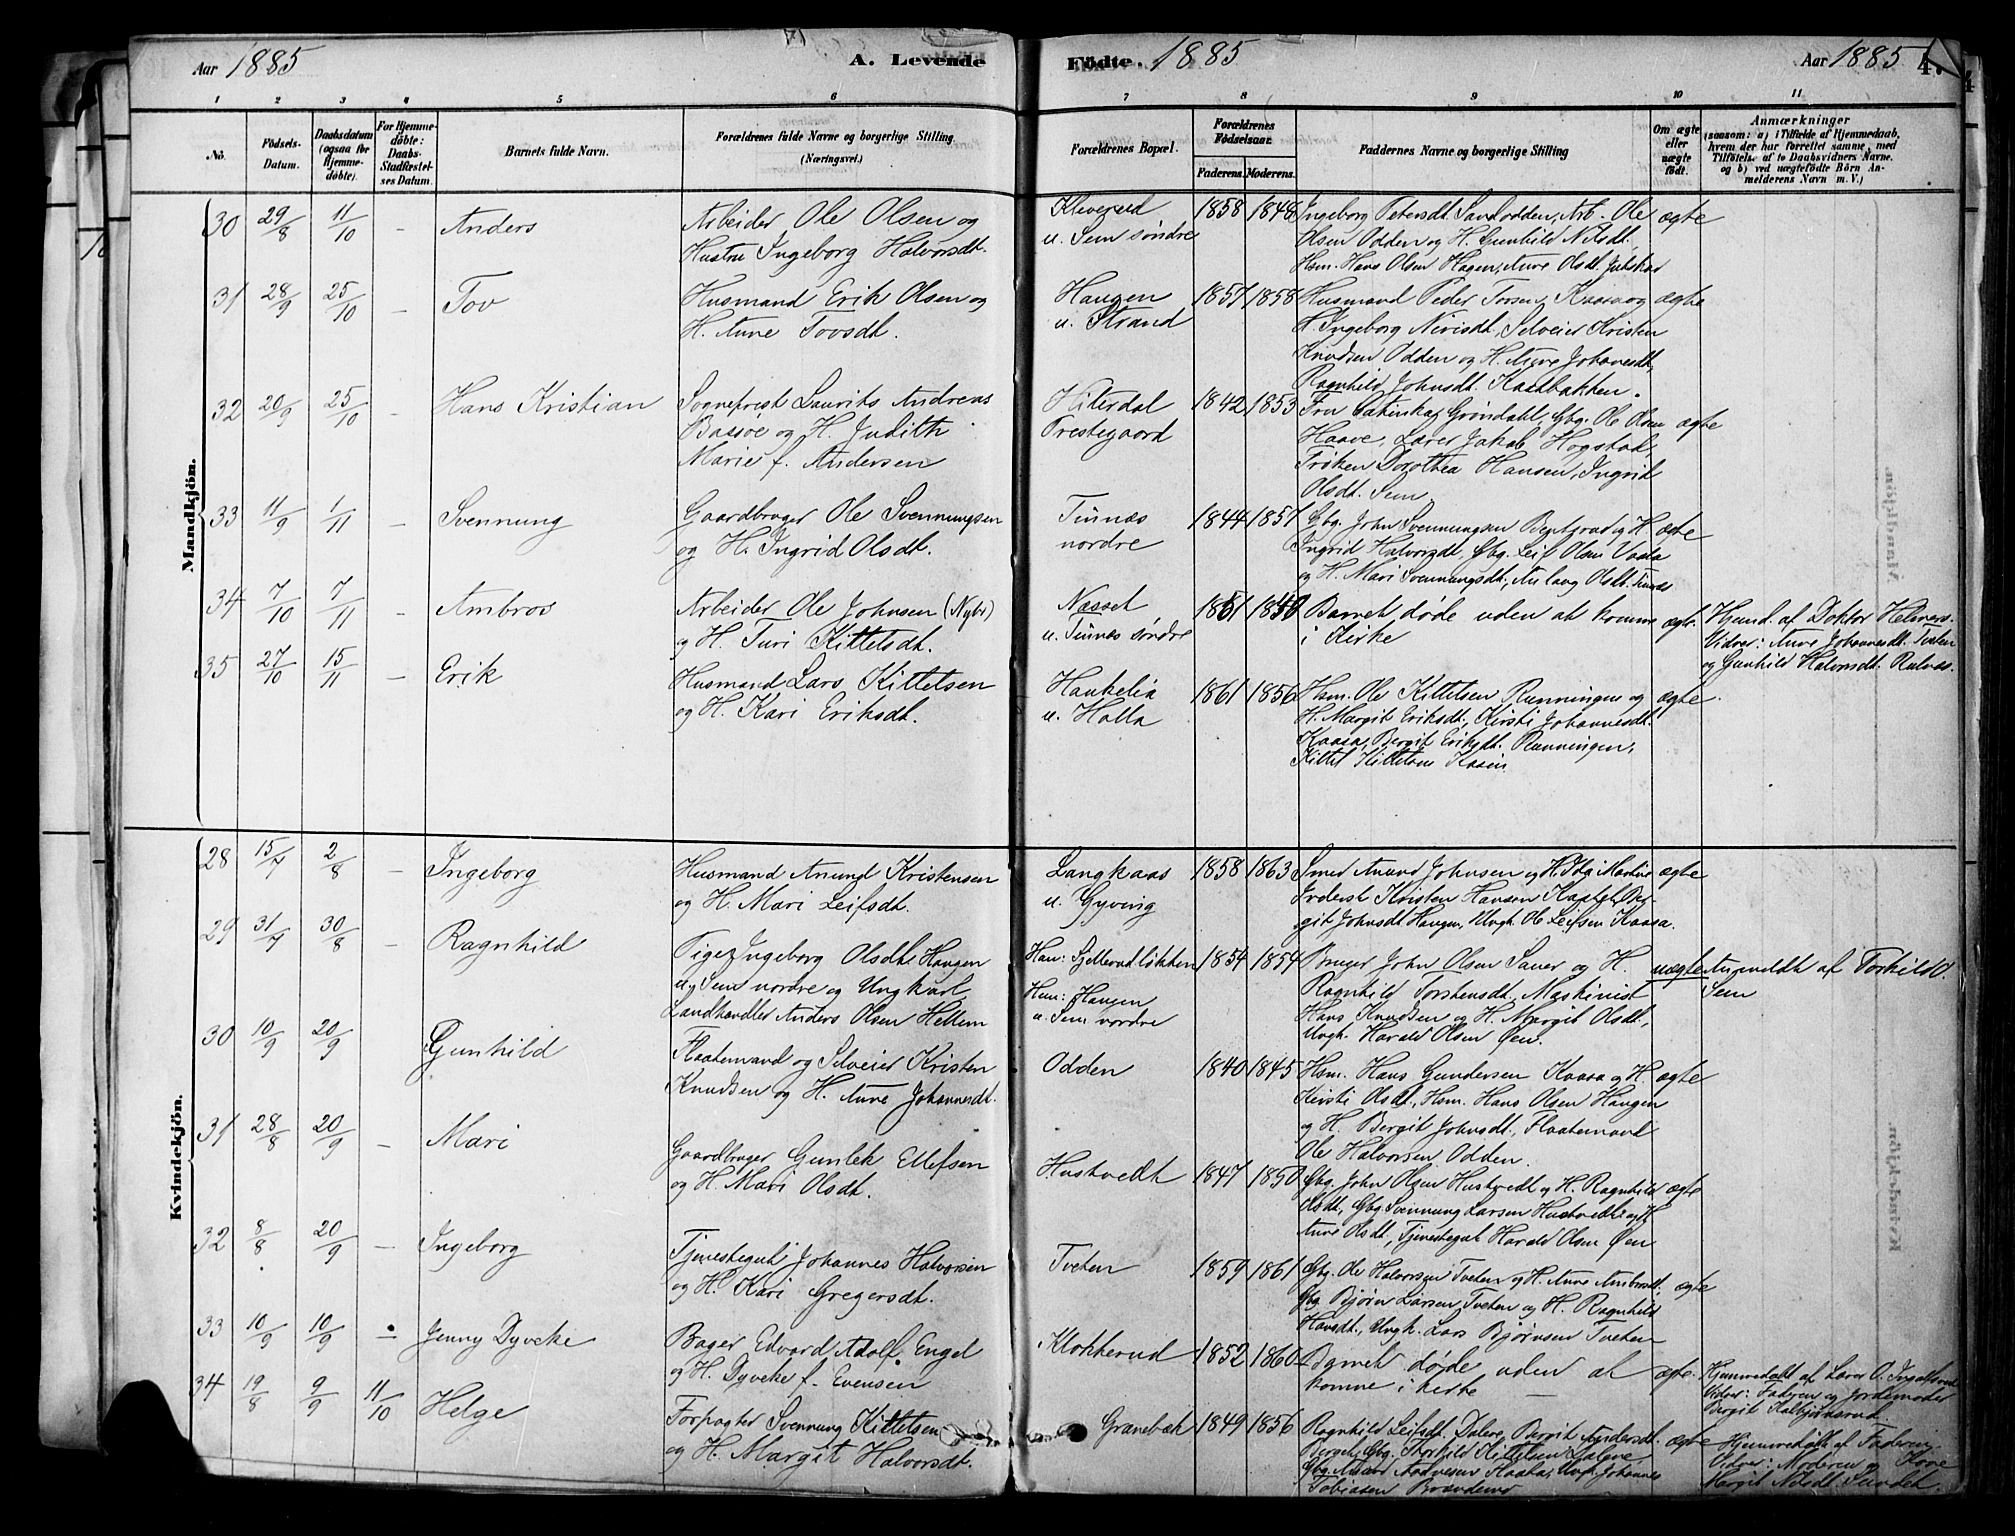 Aar 1885
A. Levende
Födte. 1885
Aar 1885
4.
1 2 3 4 5 6 7 8 9 10 11
No.
Födsels-Datum.
Daabsdatum (ogsaa for Hjemmedøbte).
For Hjemmedöbte: Daabs-Stadfæstelses Datum.
Barnets fulde Navn.
Forældrenes fulde Navne og borgerlige Stilling. (Næringsvei.)
Forældrenes Bopæl.
Forældrenes Födselsaar.
Faderens. Moderens.
Faddernes Navne og borgerlige Stilling
Om ægte eller uægte födt.
Anmærkninger
(saasom: a) i Tilfælde af Hjemmedaab, hvem der har forrettet samme, med Tilföielse af to Daabsvidners Navne, og b) ved uægtefödte Börn Anmelderens Navn m. V.)
Mandkjön.
30 29/8 11/10 – Anders
Arbeider Ole Olsen og
Hustru Ingeborg Halvorsdt.
Klevereid
u. Sem søndre
1858 1848
Ingeborg Petersdt. Sandodden, Arb. Ole
Olsen Odden og H. Gunhild Nilsdt.
Hsm. Hans Olsen Hagen, Anne Olsdt.
ægte
31 28/9 25/10 – Tov
Husmand Erik Olsen og
H. Anne Tovsdt.
Haugen
u. Strand
1857 1858
Husmand Peder Torsen Kaasa og
H. Ingeborg Selveier Kristen
Knudsen Odden og H. Anne Johannesdt,
Ragnhild Johnsdt. Kaasbakken.
ægte
32 20/9 25/10 – Hans Kristian
Sogneprest Laurits Andreas
Bassøe og H. Judith
Marie f. Andersen
Hiterdal
Prestegaard
1842 1853
Fru Catinka Grøndahl, Gbg. Ole Olsen
Haave, Lærer Jakob Hogstad,
Frøken Dorothea Hansen, Ingrid
Olsdt. Sem
ægte
33 11/9 1/11 – Svennung
Gaardbruger Ole Svennungsen
og H. Ingrid Olsdt.
Tinnæs
nordre
1844 1857
Gbg. John Svennungsen og H.
Ingrid Halvorsdt, Gbg. Leif Olsen
og H. Mari Svennungsdt., Aslaug Olsdt. Tinnæs
ægte
34 7/10 7/11 – Ambros
Arbeider Ole Johnsen (Nybø)
og H. Turi Kittelsdt.
Næsset
u. Tinnæs søndre
1851 1850
Barnet døde uden at komme
i Kirke
ægte.
Hjemd. af Doktor
Vidner: Anne Johannesdt. Tveten
og Gunhild Halvorsdt.
35 27/10 15/11 – Erik
Husmand Lars Kittelsen
og H. Kari Eriksdt.
Haukelia
u. Holla
1861 1856
Hsm. Ole Kittelsen Runningen og
H. Margit Eriksdt., Kirsti Johannesdt.
Kaasa, Bergit Eriksdt. Runningen,
Kittel Kittelsen Kaasin.
ægte.
Kvindekjön.
28 15/7 2/8 Ingeborg
Husmand Anund Kristensen
og H. Mari Leifsdt.
Langkaas
u. Gyving
1858 1863
Smed Anund Johnsen og H. Ida Martine
Inderst Kristen Hansen
Johnsdt Haugen, Ungk. Ole Leifsen Kaasa.
ægte
29 31/7 30/8 – Ragnhild
Pige Ingeborg Olsdt. Haugen
u. Sem nordre og Ungkarl
Landhandler Anders Olsen Hellem
Han: Sjellerudløkken
Hun: Haugen
u. Sem nordre
1854 1854
Bruger John Olsen Sauer og H.
Ragnhild Torstensdt, Maskinist
Hans Knudsen og H. Margit Olsdt,
Ungk. Harald Olsen Øen.
uægte
Anmeldt af Torkild O.
Sem
30 10/9 20/9 – Gunhild
Flaatemand og Selveier Kristen
Knudsen og H. Anne Johannesdt.
Odden
1840 1845
Hsm. Hans Gundersen Kaasa og H.
Kirsti Olsdt., Hsm. Hans Olsen Haugen
og H. Bergit Johnsdt., Flaatemand
Ole Halvorsen Odden.
ægte
31 28/8 20/9 – Mari
Gaardbruger Gunlek Ellefsen
og H. Mari Olsdt.
Hustvedt
1847 1850
Gbg. John Olsen Hustvedt og H. Ragnhild
Olsdt, Gbg. Svennung Larsen Hustvedt og H.
Anne Olsdt., Tjenestegut Harald Olsen Øen
ægte
32 8/8 20/9 – Ingeborg
Tjenestegut Johannes Halvorsen
og H. Kari Gregersdt.
Tveten
1859 1861
Gbg. Ole Halvorsen Tveten og H. Anne Ambrosdt.
Gbg. Bjørn Larsen Tveten og H. Ragnhild
Hansdt., Ungk. Lars Bjørnsen Tveten
ægte
33 10/9 10/9 – Jenny Dyveke
Bager Edvard Adolf Engel
og H. Dyveke f. Evensen
Klokkerud
1852 1860
Barnet døde uden at
komme i kirke –
ægte.
Hjemmedøbt af Lærer O.
Vidner: Faderen og Jordemoder
Bergit
34 19/8 9/9 11/10 Helge
Forpagter Svennung Kittelsen
og H. Margit Halvorsdt.
Granebæk
1849 1856
Ragnhild Leifsdt. Dalene, Bergit Andersdt.
Gbg. Thorkild Kittelsen
Gbg. Anund Flaata, Ungk. Johannes
Tobiassen
ægte
Hjemmedøbt af Faderen,
Vidner: Moderen og Kone
Margit Nilsdt. Sundet.